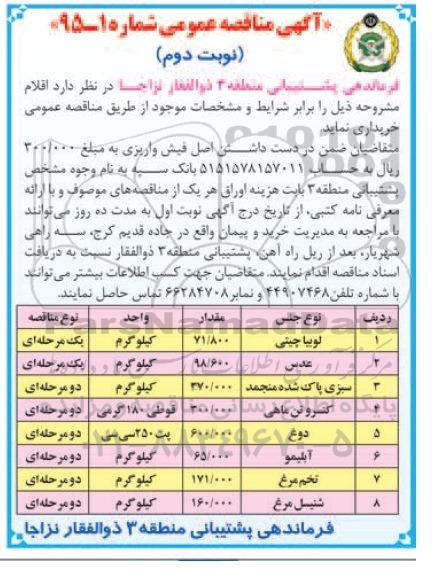 «آگهی مناقصه عمومی شماره ۱ـ۹۵»
(نوبت دوم)
فرماندهی پشتیبانی منطقه ۳ ذوالفقار نزاجا در نظر دارد اقلام
مشروحه ذیل را برابر شرایط و مشخصات موجود از طریق مناقصه عمومی
خریداری نماید
متقاضیان ضمن در دست داشتن اصل فیش واریزی به مبلغ ۳۰۰/۰۰۰
ریال به حساب ۵۱۵۱۵۷۸۱۵۷۰۱۱ بانک سپه به نام وجوه مشخص
پشتیبانی منطقه ۳ بابت هزینه اوراق هر یک از مناقصه‌های موصوف و با ارائه
معرفی نامه کتبی، از تاریخ درج آگهی نوبت اول به مدت ده روز می‌توانند
با مراجعه به مدیریت خرید و پیمان واقع در جاده قدیم کرج، سه راهی
شهریار، بعد از ریل راه آهن، پشتیبانی منطقه ۳ ذوالفقار نسبت به دریافت
اسناد مناقصه اقدام نمایند. متقاضیان جهت کسب اطلاعات بیشتر می‌توانند
با شماره تلفن ۴۴۹۰۷۴۶۸ و نمابر ۶۶۲۸۴۷۰۸ تماس حاصل نمایند.
ردیف نوع جنس مقدار واحد نوع مناقصه
۱ لوبیا چیتی ۷۱/۸۰۰ کیلوگرم یک مرحله‌ای
۲ عدس ۹۸/۶۰۰ کیلوگرم یک مرحله‌ای
۳ سبزی پاک شده منجمد ۳۷۰/۰۰۰ کیلوگرم دو مرحله‌ای
۴ کنسرو تن ماهی ۳۰۰/۰۰۰ قوطی ۱۸۰ گرمی دو مرحله‌ای
۵ دوغ ۶۰۰/۰۰۰ پت ۲۵۰ سی سی دو مرحله‌ای
۶ آبلیمو ۶۵/۰۰۰ کیلوگرم دو مرحله‌ای
۷ تخم مرغ ۱۷۱/۰۰۰ کیلوگرم دو مرحله‌ای
۸ شنیسل مرغ ۱۶۰/۰۰۰ کیلوگرم دو مرحله‌ای
فرماندهی پشتیبانی منطقه ۳ ذوالفقار نزاجا
ParsNamadData
۰۲۱-۸۸۳۴۹۶۷۰-۵